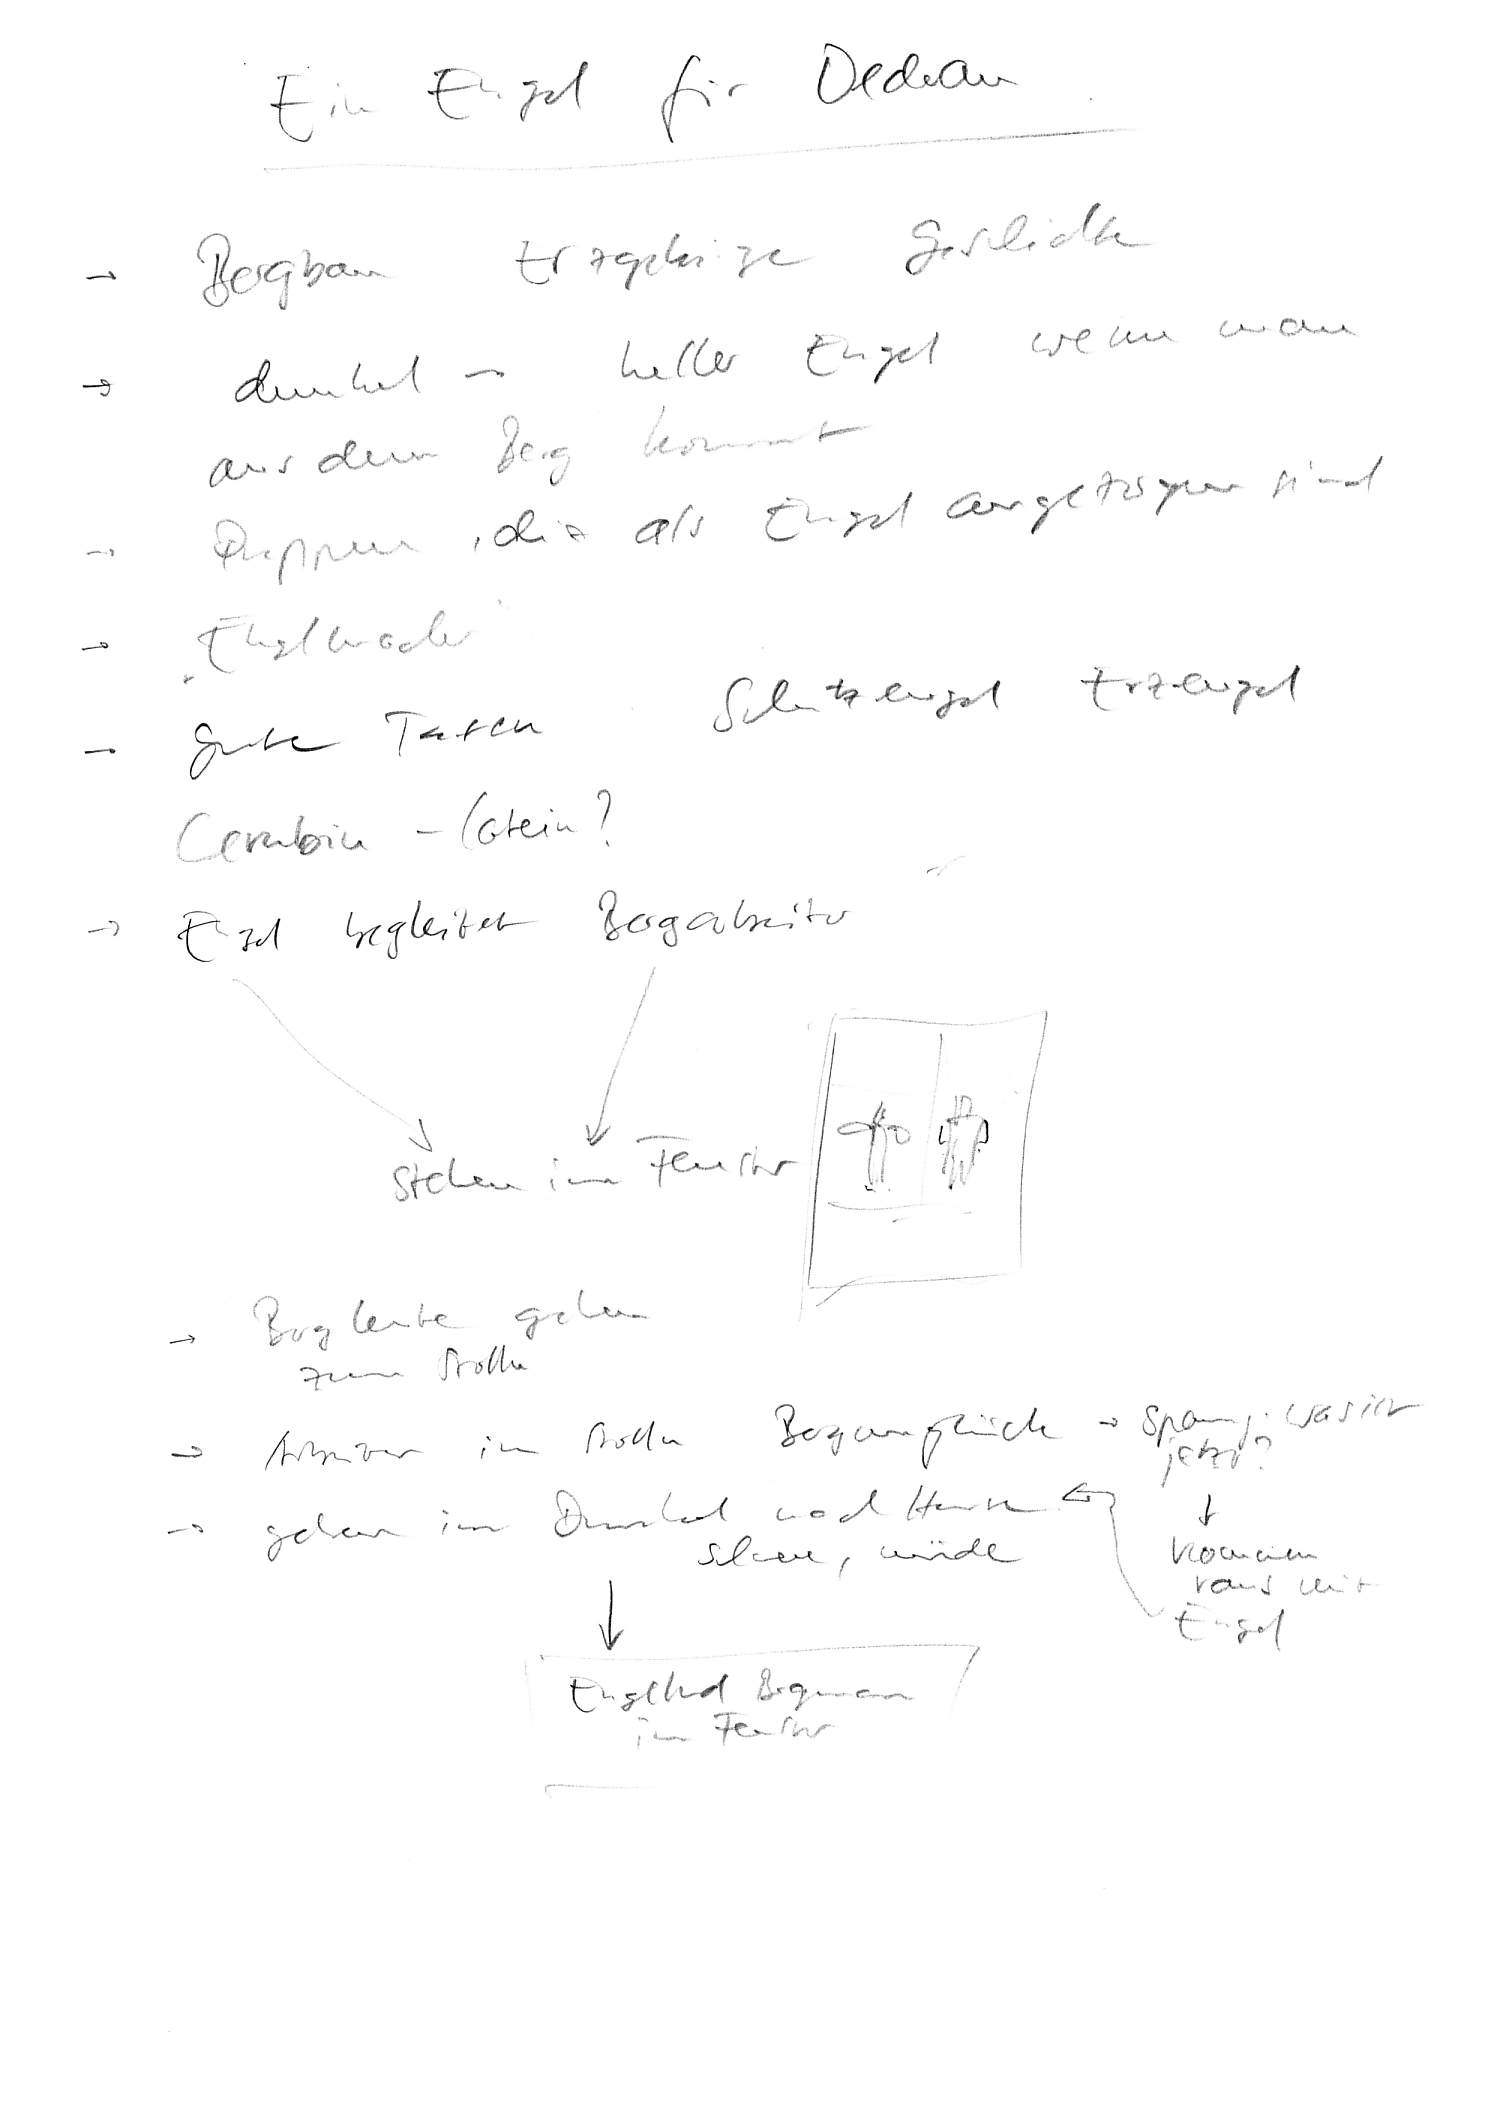 Ein Engel für
→ Bergbau Erzgebirge Geschichte
→ dunkel → heller Engel wenn man
aus dem Berg kommt
→ Puppen, die als Engel angezogen sind
→
→ gute Taten Schutzengel Erzengel
Cerubin – Latein?
→ Engel begleitet Bergarbeiter
stehen im Fenster
→ Bergleute gehen
zum Stollen
→ Arbeiten im Stollen Bergunglück → Spannung: was ist
jetzt?
→ gehen im Dunkel nach Hause
schwer, müde
kommen
raus mit
Engel
Engel und Bergmann
im Fenster